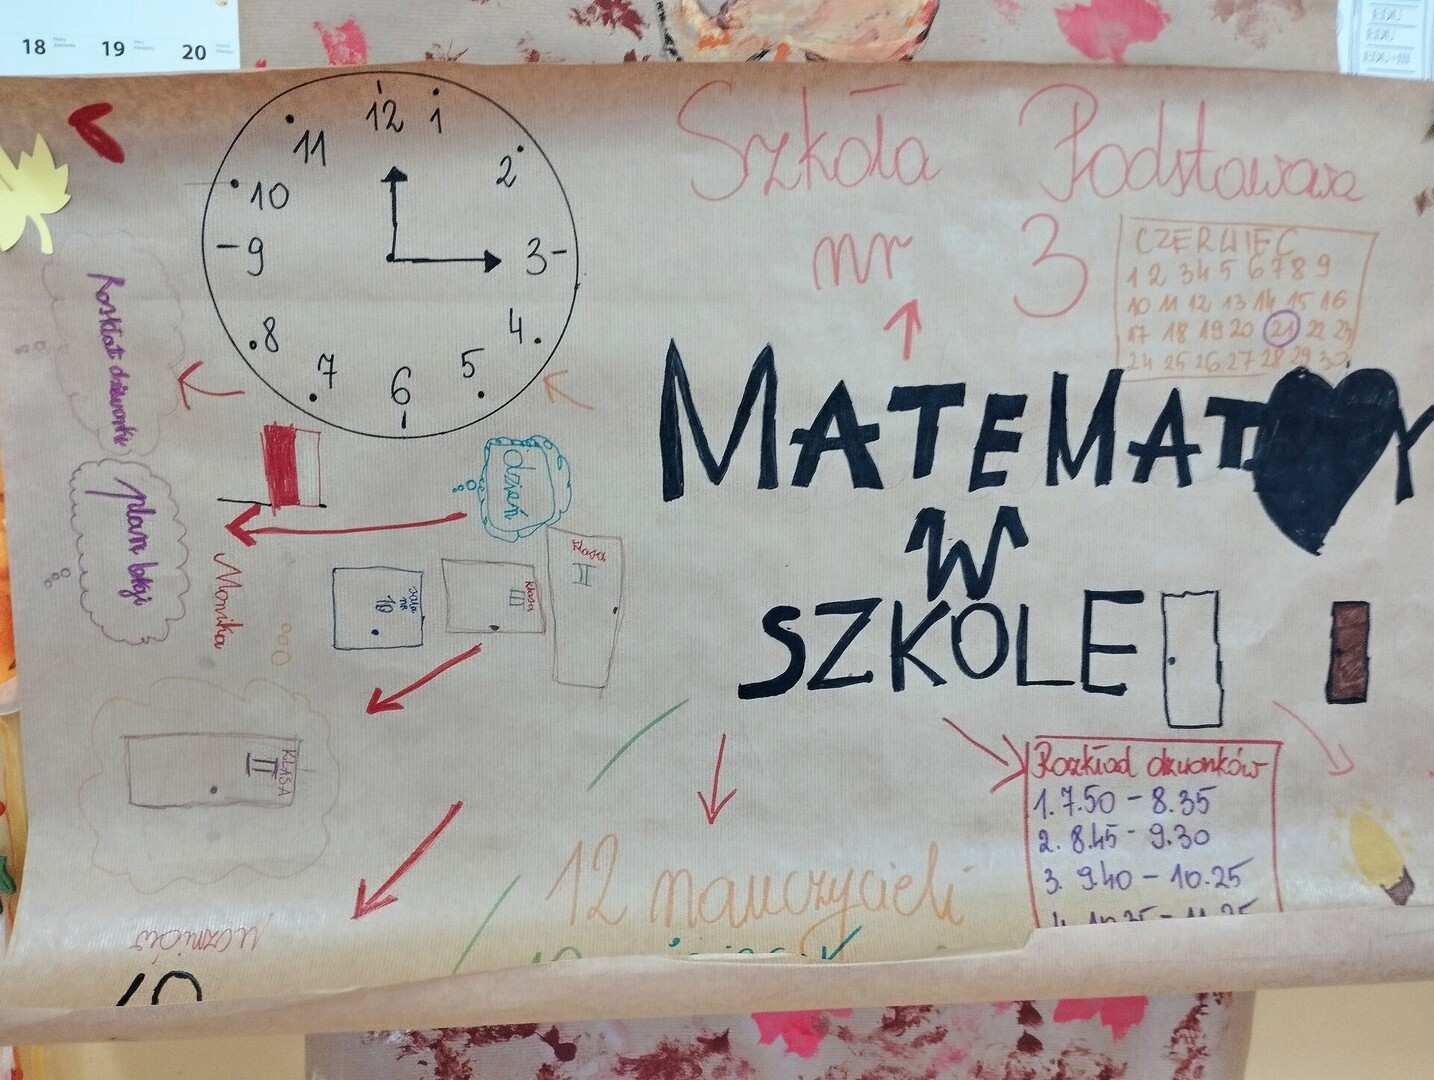 18 19 20
Szkoła Podstawowa
nr 3
CZERWIEC
1 2 3 4 5 6 7 8 9
10 11 12 13 14 15 16
17 18 19 20 21 22 23
24 25 26 27 28 29 30
MATEMATY
W
SZKOLE
12
1
2
3
4
5
6
7
8
9
10
11
plan lekcji
dzień
Monika
sala
nr
19
klasa
III
klasa
II
KLASA
II
Rozkład dzwonków
1. 7.50 - 8.35
2. 8.45 - 9.30
3. 9.40 - 10.25
12 nauczycieli
uczniów